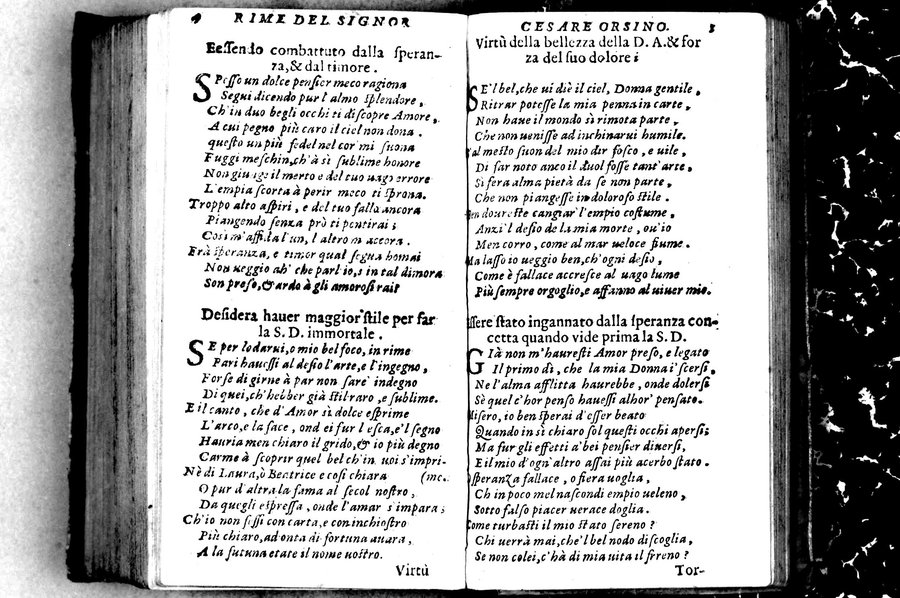 4 RIME DEL SIGNOR
Eessendo combattuto dalla speran-
za, & dal timore.
Spesso un dolce pensier meco ragiona
Segui dicendo pur l'almo splendore,
Ch'in duo begli occhi ti discopre Amore,
A cui pegno più caro il ciel non dona.
questo un più fedel nel cor mi suona
Fuggi meschin, ch'à sì sublime honore
Non giunge il merto e del tuo uago errore
L'empia scorta à perir meco ti sprona.
Troppo alto aspiri, e del tuo fallo ancora
Piangendo senza prò ti pentirai;
Così m'affida l'un, l'altro m'accora.
Frà speranza, e timor qual segua homai
Non ueggio ah' che parl'io, s'in tal dimora
Son preso, & ardo à gli amorosi rai?
Desidera hauer maggior stile per far
la S. D. immortale.
SE per lodarui, o mio bel foco, in rime
Pari hauessi al desio l'arte, e l'ingegno,
Forse di girne à par non sare' indegno
Di quei, ch'hebber già stil raro, e sublime.
E il canto, che d'Amor sì dolce esprime
L'arco, e la face, ond'ei fur l'esca, e'l segno
Hauria men chiaro il grido, & io più degno
Carme à scoprir quel bel ch'in uoi s'impri-
Nè di Laura, ò Beatrice e cosi chiara (me.
O pur d'altra la fama al secol nostro,
Da quegli espressa, onde l'amar s'impara;
Ch'io non fessi con carta, e con inchiostro
Più chiaro, ad onta di fortuna auara,
A la futura etate il nome uostro.
Virtù
CESARE ORSINO. 5
Virtù della bellezza della D. A. & for
za del suo dolore:
SE'l bel, che ui diè il ciel, Donna gentile,
Ritrar potesse la mia penna in carte,
Non haue il mondo sì rimota parte,
Che non uenisse ad inchinarui humile.
Tal mesto suon del mio dir fosco, e uile,
Di far noto anco il duol fosse tant'arte,
Sì fera alma pietà da se non parte,
Che non piangesse in doloroso stile.
Ben doureste cangiar l'empio costume,
Anzi'l desio de la mia morte, ou'io
Men corro, come al mar ueloce fiume.
Ma lasso io ueggio ben, ch'ogni desio,
Come è fallace accresce al uago lume
Più sempre orgoglio, e affanno al uiuer mio.
Essere stato ingannato dalla speranza con-
cetta quando vide prima la S. D.
GIà non m'hauresti Amor preso, e legato
Il primo dì, che la mia Donna i'scersi,
Ne l'alma afflitta haurebbe, onde dolersi
Sè quel c'hor penso hauessi alhor' pensato.
Misero, io ben sperai d'esser beato
Quando in sì chiaro sol questi occhi apersi;
Ma fur gli effetti a' bei pensier diuersi,
E il mio d'ogn'altro assai più acerbo stato.
O speranza fallace, o fiera uoglia,
Ch'in poco mel nascondi empio ueleno,
Sotto falso piacer uerace doglia.
Come turbasti il mio stato sereno?
Chi uerrà mai, che'l bel nodo discoglia,
Se non colei, c'hà di mia uita il freno?
Tor-